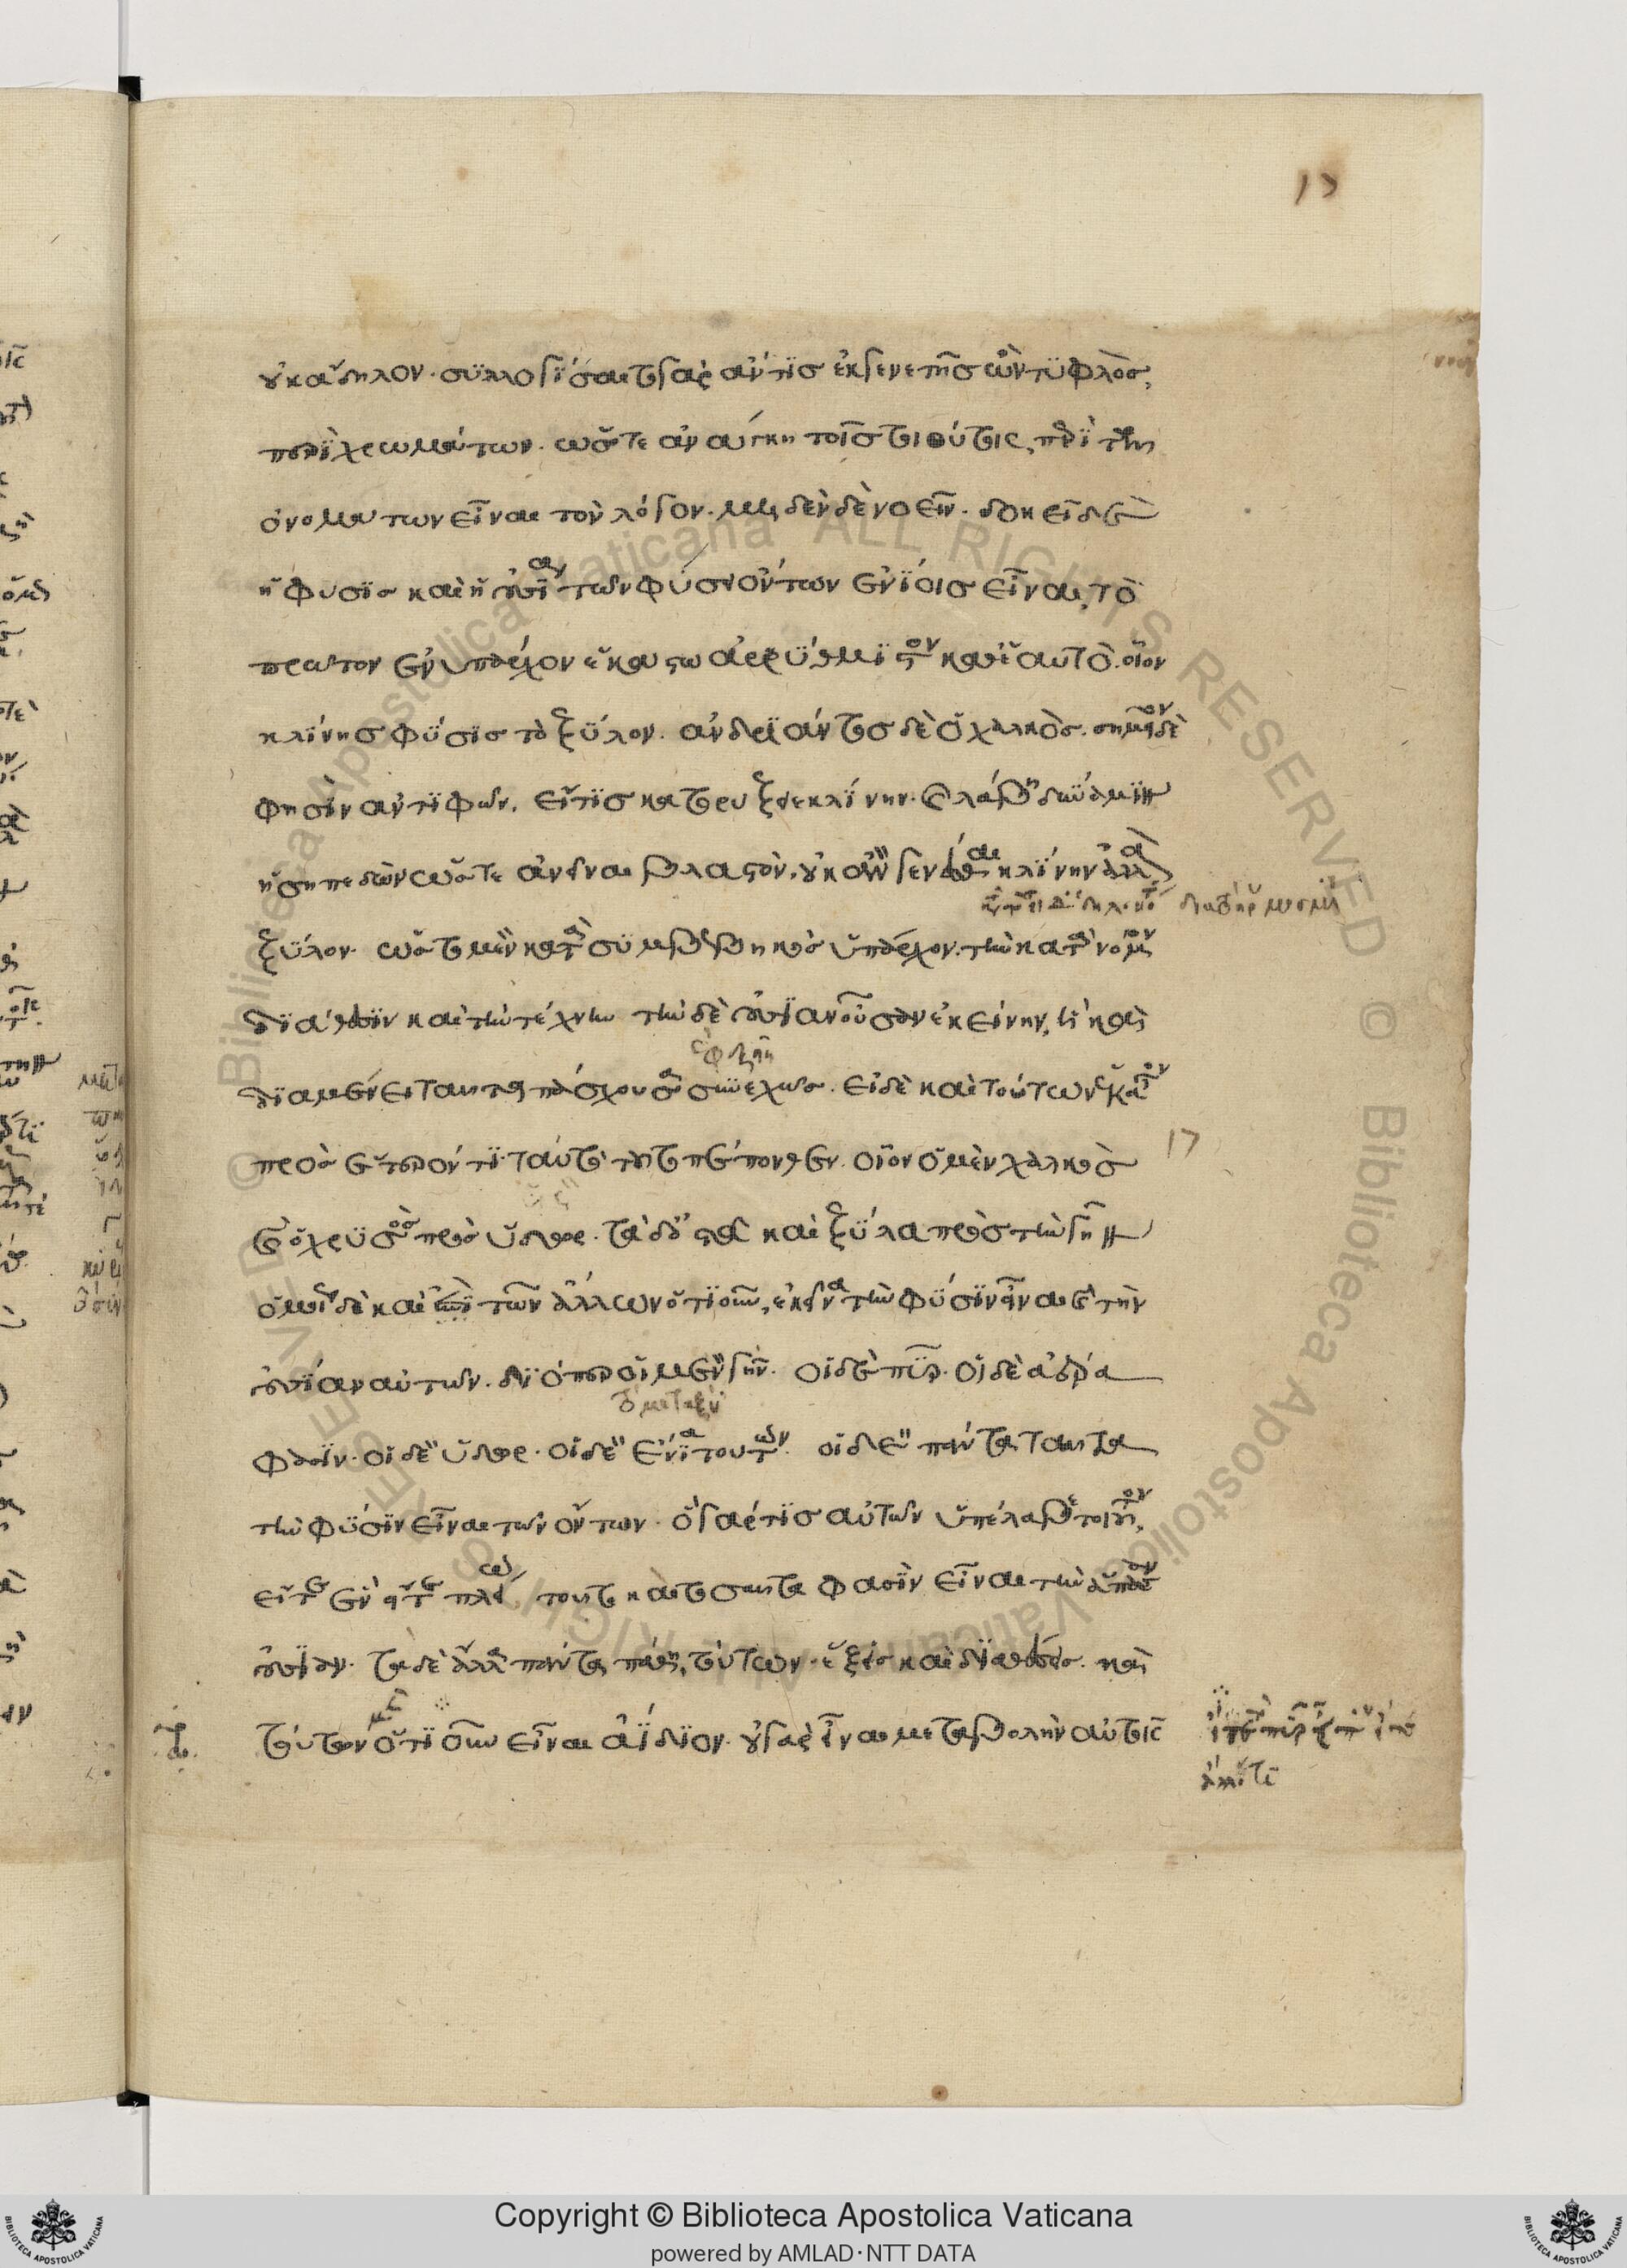 17
οὐκ ἄδηλον· συλλογίσαιτο γὰρ ἄν τις ἐκ γενετῆς ὢν τυφλὸς,
περὶ χρωμάτων· ὥστε ἀνάγκη τοῖς τοιούτοις, περὶ τῶν
ὀνομάτων εἶναι τὸν λόγον· μηδὲν δὲ νοεῖν· δοκεῖ δὲ
ἡ φύσις καὶ ἡ οὐσία τῶν φύσει ὄντων ἐνίοις εἶναι, τὸ
πρῶτον ἐνυπάρχον ἑκάστω ἀρρύθμιστον καθ' ἑαυτὸ· οἷον
κλίνης φύσις τὸ ξύλον· ἀνδριάντος δὲ ὁ χαλκὸς· σημεῖον δὲ
φησὶν ἀντιφῶν, εἴ τις κατορύξειε κλίνην· καὶ λάβοι δύναμιν
ἡ σηπεδὼν ὥστε ἀνεῖναι βλαστὸν, οὐκ ἂν γενέσθαι κλίνην ἀλλὰ
ξύλον· ὡς τὸ μὲν κατὰ συμβεβηκὸς ὑπάρχον· τὴν κατὰ νόμον
διάθεσιν καὶ τὴν τέχνην τὴν δὲ οὐσίαν οὖσαν ἐκείνην, ἣ καὶ
διαμένει ταῦτα πάσχουσα συνεχῶς· εἰ δὲ καὶ τούτων ἕκαστον
πρὸς ἕτερόν τι ταὐτὸ τοῦτο πέπονθεν· οἷον ὁ μὲν χαλκὸς
καὶ ὁ χρυσὸς πρὸς ὕδωρ· τὰ δ' ὀστᾶ καὶ ξύλα πρὸς τὴν γῆν
ὁμοίως δὲ καὶ τῶν ἄλλων ὁτιοῦν, ἐκεῖνα τὴν φύσιν εἶναι καὶ τὴν
οὐσίαν αὐτῶν· διόπερ οἱ μὲν γῆν· οἱ δὲ πῦρ· οἱ δὲ ἀέρα
τὸ μεταξύ
φασὶν· οἱ δὲ ὕδωρ· οἱ δὲ ἔνια τούτων· οἱ δὲ πάντα ταῦτα
τὴν φύσιν εἶναι τῶν ὄντων· ὃ γάρ τις αὐτῶν ὑπέλαβε τοιοῦτον,
εἴτε ἓν εἴτε πλείω τοῦτο καὶ τοσαῦτα φασὶν εἶναι τὴν ἅπασαν
οὐσίαν· τὰ δὲ ἄλλα πάντα πάθη, τούτων· ἕξεις καὶ διαθέσεις· καὶ
τούτων ὁτιοῦν εἶναι ἀΐδιον· οὐ γὰρ εἶναι μεταβολὴν αὐτοῖς